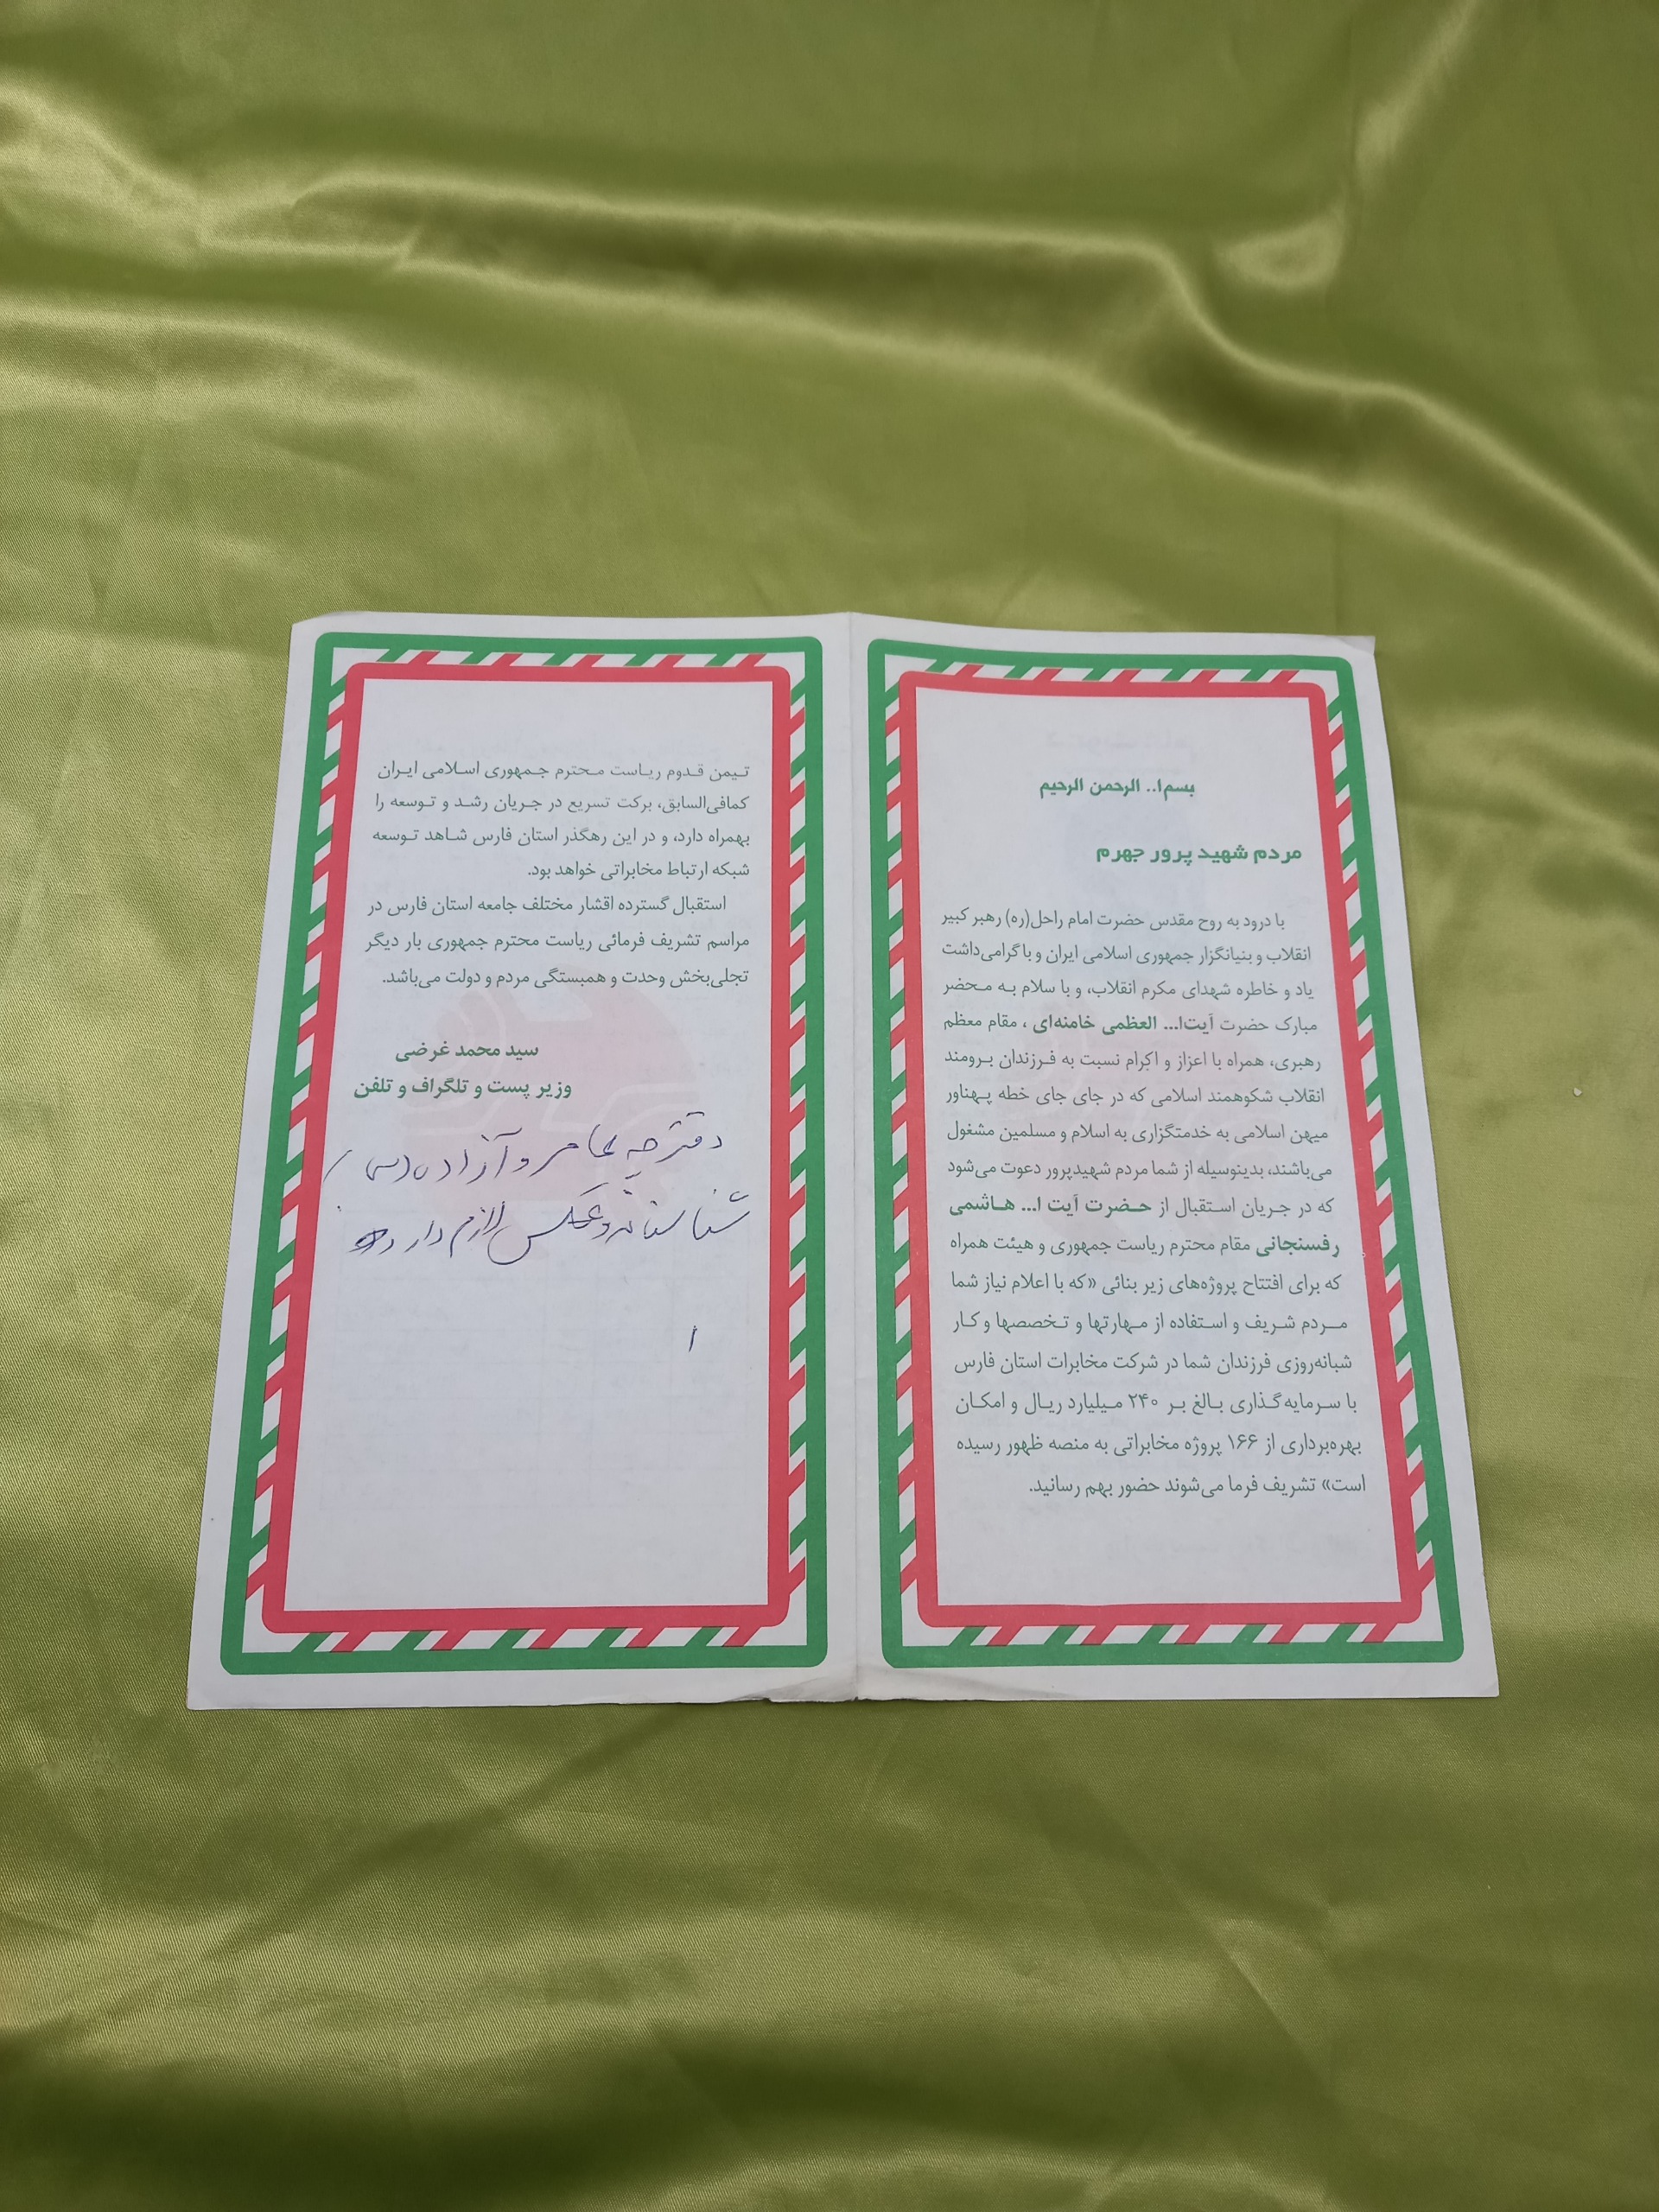 بسم‌ا.. الرحمن الرحیم
مردم شهید پرور جهرم
با درود به روح مقدس حضرت امام راحل(ره) رهبر کبیر
انقلاب و بنیانگزار جمهوری اسلامی ایران و با گرامی‌داشت
یاد و خاطره شهدای مکرم انقلاب، و با سلام به محضر
مبارک حضرت آیت‌ا... العظمی خامنه‌ای ، مقام معظم
رهبری، همراه با اعزاز و اکرام نسبت به فرزندان برومند
انقلاب شکوهمند اسلامی که در جای جای خطه پهناور
میهن اسلامی به خدمتگزاری به اسلام و مسلمین مشغول
می‌باشند، بدینوسیله از شما مردم شهیدپرور دعوت می‌شود
که در جریان استقبال از حضرت آیت ا... هاشمی
رفسنجانی مقام محترم ریاست جمهوری و هیئت همراه
که برای افتتاح پروژه‌های زیر بنائی «که با اعلام نیاز شما
مردم شریف و استفاده از مهارتها و تخصصها و کار
شبانه‌روزی فرزندان شما در شرکت مخابرات استان فارس
با سرمایه‌گذاری بالغ بر ۲۴۰ میلیارد ریال و امکان
بهره‌برداری از ۱۶۶ پروژه مخابراتی به منصه ظهور رسیده
است» تشریف فرما می‌شوند حضور بهم رسانید.
تیمن قدوم ریاست محترم جمهوری اسلامی ایران
کمافی‌السابق، برکت تسریع در جریان رشد و توسعه را
بهمراه دارد، و در این رهگذر استان فارس شاهد توسعه
شبکه ارتباط مخابراتی خواهد بود.
استقبال گسترده اقشار مختلف جامعه استان فارس در
مراسم تشریف فرمائی ریاست محترم جمهوری بار دیگر
تجلی‌بخش وحدت و همبستگی مردم و دولت می‌باشد.
سید محمد غرضی
وزیر پست و تلگراف و تلفن
دفترچه و آزاده
شناسنامه و عکس لازم دارد